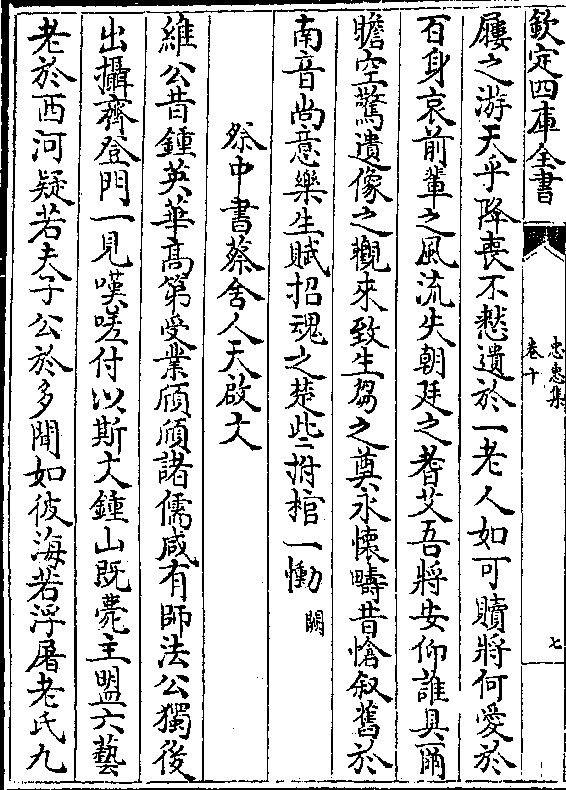 欽定四庫全書
忠惠集
卷十
七
屨之游天乎降喪不憖遺於一老人如可贖將何愛於
百身哀前輩之風流失朝廷之耆艾吾將安仰誰具爾
瞻空驚遺像之觀來致生芻之奠永懷疇昔愴叙舊於
南音尚意樂生賦招魂之楚些拊棺一慟闕
祭中書蔡舍人天啟文
維公昔鍾英華高第受業頎頎諸儒咸有師法公獨後
出攝齊登門一見嘆嗟付以斯文鍾山既薨主盟六藝
老於西河疑若夫子公於多聞如彼海若浮屠老氏九